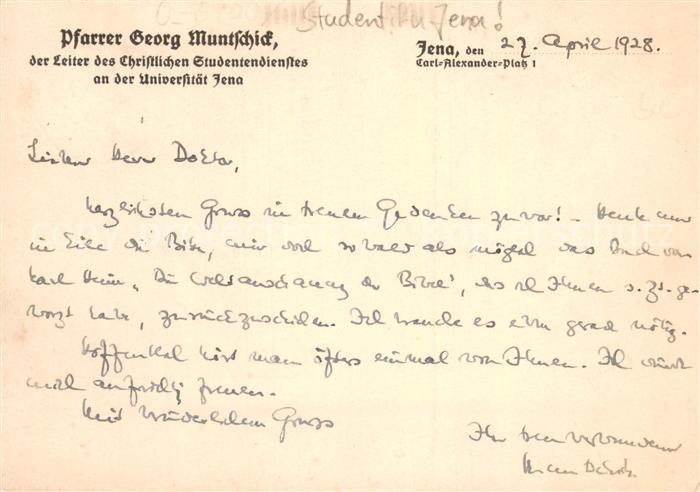 Studentik Jena!
Pfarrer Georg Muntschick,
der Leiter des Christlichen Studentendienstes
an der Universität Jena
Jena, den 27. April 1928.
Carl-Alexander-Platz 1
Lieber Herr Doktor,
herzlichsten Gruss in treuem Gedenken zuvor! - Heute nur
in Eile die Bitte, mir doch sobald als möglich das Buch von
Karl Heim „Die Weltanschauung der Bibel“, das ich Ihnen s. Zt. ge-
borgt habe, zurückzusenden. Ich brauche es eben gerade nötig.
Hoffentlich hört man öfters einmal von Ihnen. Ich würde
mich aufrichtig freuen.
Mit brüderlichem Gruss
Ihr treu verbundener